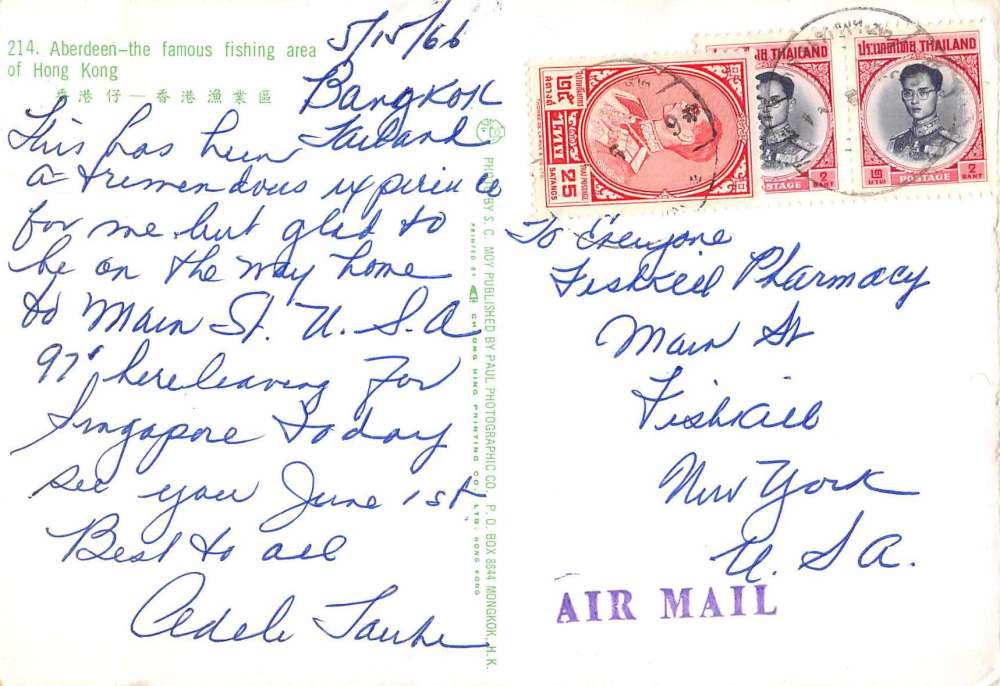 214. Aberdeen—the famous fishing area
of Hong Kong
香港仔—香港漁業區
5/15/66
Bangkok
Tailand
This has been
a tremendous experience
for me but glad to
be on the way home
to Main St. U.S.A
97° here leaving for
Singapore today
see you June 1st
Best to all
Adele
PHOTO BY S. C. MOY PUBLISHED BY PAUL PHOTOGRAPHIC CO., P. O. BOX 8844 MONGKOK, H.K.
PRINTED BY CHEONG HING PRINTING CO., LTD. HONG KONG
25
SATANGS
THAILAND
ประเทศไทย THAILAND
๒ บาท POSTAGE 2 BAHT
POSTAGE 2 BAHT
To Everyone
Fishkill Pharmacy
Main St
Fishkill
New York
U. S A.
AIR MAIL